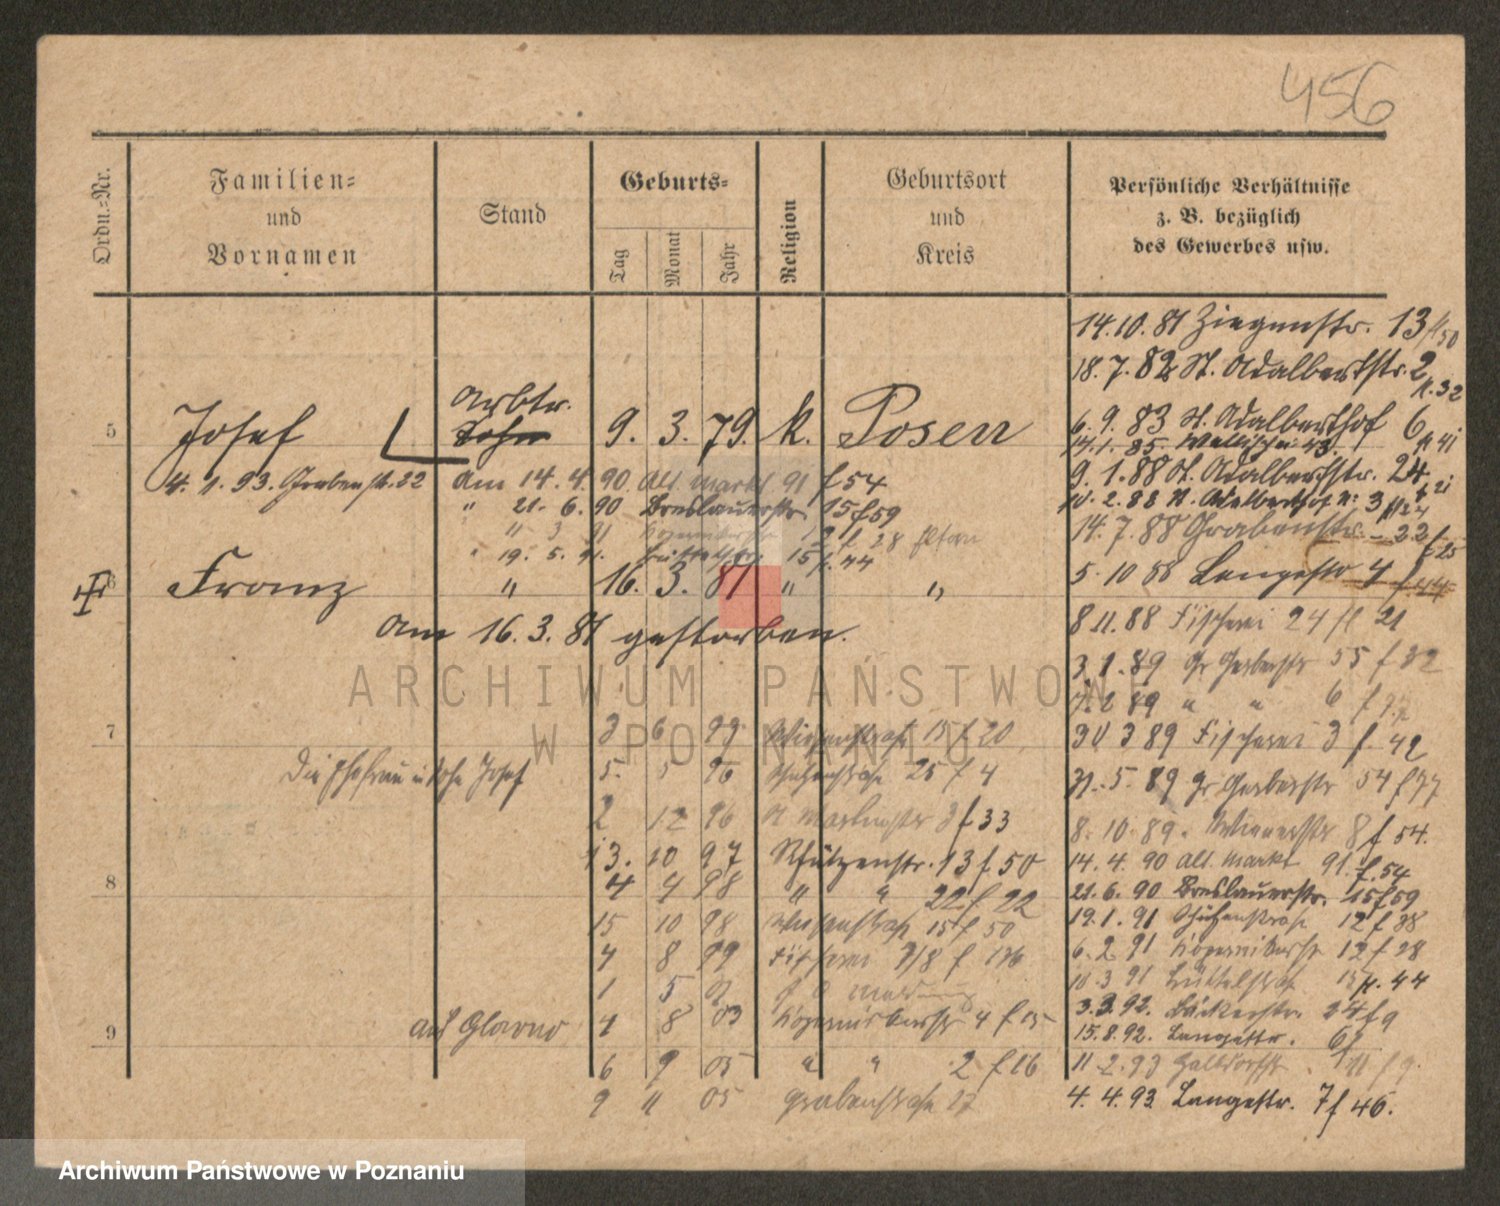 456
Ordn.-Nr.
Familien-
und
Vornamen
Stand
Geburts-
Tag
Monat
Jahr
Religion
Geburtsort
und
Kreis
Persönliche Verhältnisse
z. B. bezüglich
des Gewerbes usw.
14.10.81 Ziegenstr. 13
18.7.82 St. Adalbertstr. 2
6.9.83 St. Adalberthof 6
14.1.85 Wallischei 43
9.1.88 St. Adalbertstr. 24
10.2.88 St. Adalberthof 3
14.7.88 Grabenstr. 22
5.10.88 Langestr 4 f 44
8.11.88 Fischerei 24 fl 21
3.1.89 Gr Gerberstr 55 f 32
2 89 " " 6 f
30 3 89 Fischerei 3 f. 42
5. 89 Gr Gerberstr 54 f 77
8. 10. 89. Wienerstr 8 f 54.
14. 4. 90 Alt. Markt 91. f. 54
21. 6. 90 Breslauerstr. 15 f 59
19. 1. 91 Schützenstraße 12 f 38
6. 2 91 Kopernikusstr 12 f 28
10. 3 91 Büttelstraße 15 f. 44
3. 3. 92. Bäckerstr. 24 f 9
15. 8. 92. Langestr. 6
11. 2. 93
4. 4. 93 Langestr. 7 f 46.
5
Josef
Arbtr.
Sohn
9. 3. 79. k. Posen
4. 1. 93. Grabenstr. 22
Am 14. 4. 90 Alt. Markt 91 f 54
" 21. 6. 90 Breslauerstr. 15 f 59
" 3 91 Kopernikusstr 12 f. 28
" 19. 5. 91. Büttelstr. 15 f. 44
6
Franz " 16. 3. 81 " "
Am 16. 3. 81 gestorben.
7
3 6 99 Wiesenstraße 15 f 20
Die Ehefrau u Sohn Josef
5. 5 96 Schützenstraße 25 f 4
2 12 96 St Martinstr 3 f 33
13. 10 97 Schützenstr. 13 f. 50
8
4 4 98 " " 22 f 22
15 10 98 Wiesenstraße 15 f 50
4 8 99 Fischerei 7/8 f 136
1 5 01
9
aus Glowno 4 8 03 Kopernikusstr 4 f 15
6 9 05 " " 2 f 16
9 11 05 Grabenstraße 27
ARCHIWUM PAŃSTWOWE
W POZNANIU
Archiwum Państwowe w Poznaniu